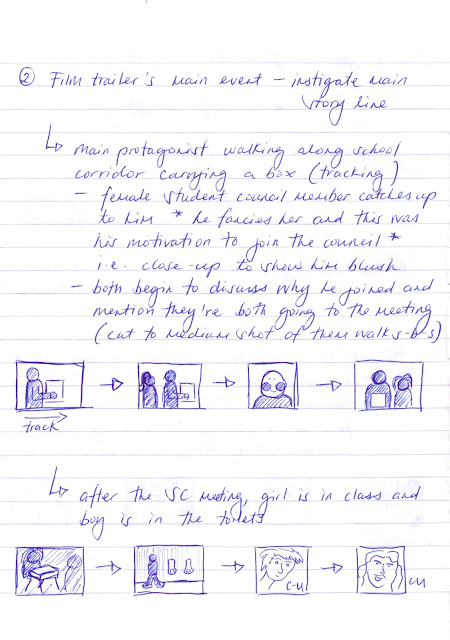 ② Film trailer's main event – instigate main
story line
↳ main protagonist walking along school
corridor carrying a box (tracking)
– female student council member catches up
to him * he fancies her and this was
his motivation to join the council *
i.e. close-up to show him blush
– both begin to discuss why he joined and
mention they're both going to the meeting
(cut to medium shot of them walk s-b-s)
track
↳ after the SC meeting, girl is in class and
boy is in the toilets
C-U
CU